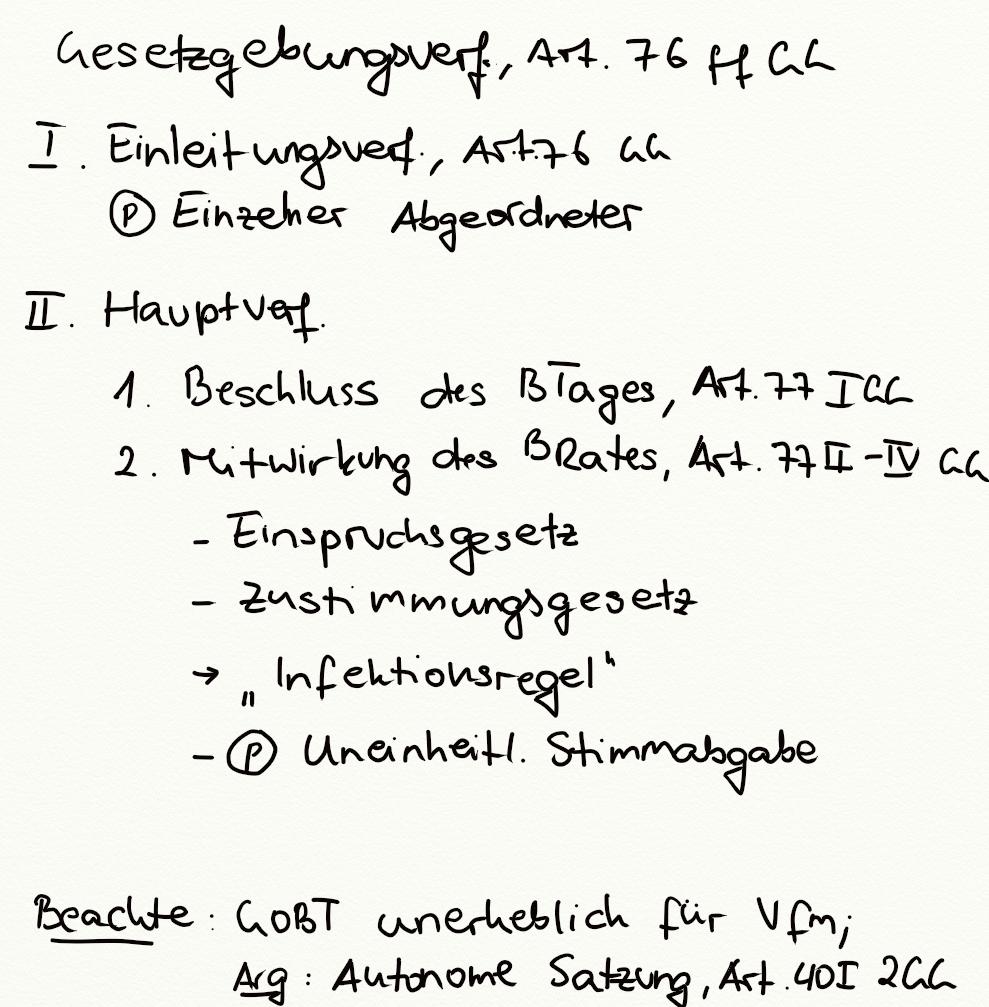 Gesetzgebungsverf., Art. 76 ff GG
I. Einleitungsverf., Art. 76 GG
Ⓟ Einzelner Abgeordneter
II. Hauptverf.
1. Beschluss des BTages, Art. 77 I GG
2. Mitwirkung des BRates, Art. 77 II - IV GG
- Einspruchsgesetz
- Zustimmungsgesetz
→ „Infektionsregel“
- Ⓟ Uneinheitl. Stimmabgabe
Beachte: GOBT unerheblich für Vfm;
Arg: Autonome Satzung, Art. 40 I 2 GG